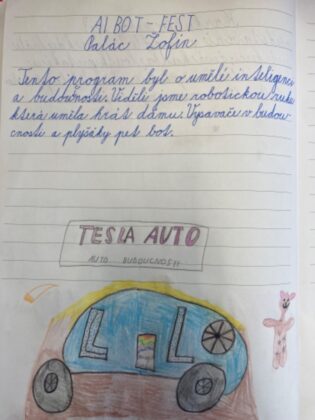 AI BOT - FEST
Palác Žofín
Tento program byl o umělé inteligenci
a budoucnosti. Viděli jsme robotickou ruku
která uměla hrát dámu. Vysavače v budou-
cnosti a plyšáky pet bot.
TESLA AUTO
AUTO BUDOUCNOSTI